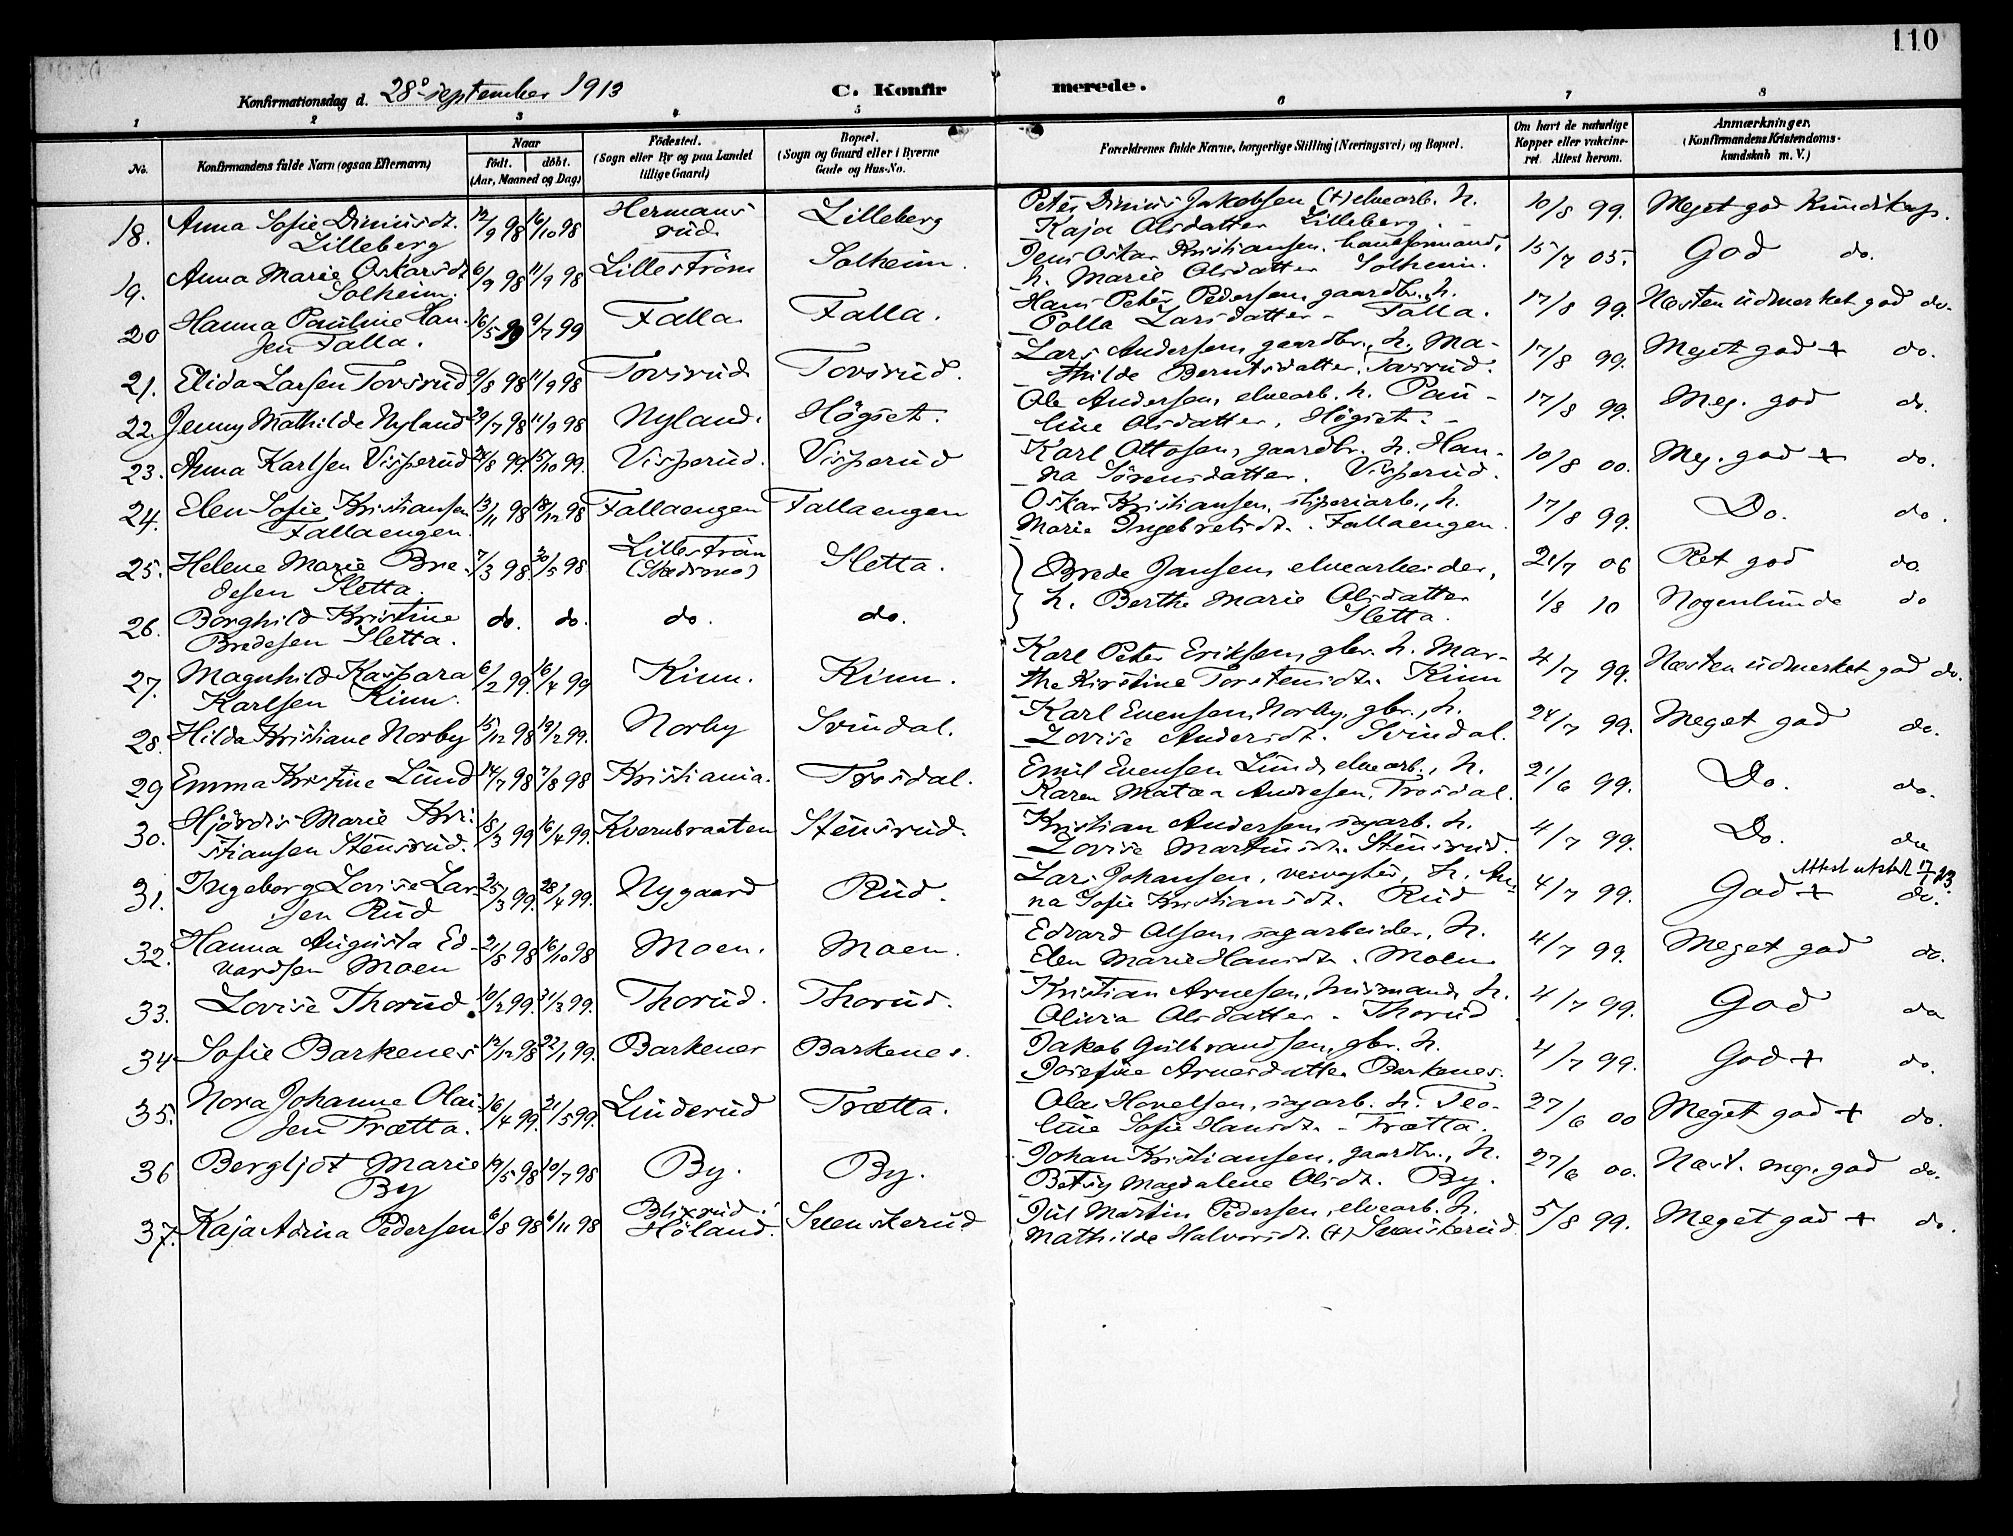 110
Konfirmationsdag d. 28de september 1913 C. Konfirmerede.
1 2 3 4 5 6 7 8
No. Konfirmandens fulde Navn (ogsaa Efternavn) Naar født. døbt. (Aar, Maaned og Dag) Fødested. (Sogn eller By og paa Landet tillige Gaard) Bopæl. (Sogn og Gaard eller i Byerne Gade og Hus-No. Forældrenes fulde Navne, borgerlige Stilling (Næringsvei) og Bopæl. Om havt de naturlige Kopper eller vakcineret. Attest herom. Anmærkninger. (Konfirmandens Kristendomskundskab m. V.)
18. Anna Sofie Dinius dt. 12/9 98 16/10 98 Hermans Lilleberg Peter Dinius Jakobsen (+) elvearb. h. 10/8 99. Meget god Kundskap.
Lilleberg rud. Kaja Olsdatter Lilleberg.
19. Anna Marie Oskarsdt 6/9 98 11/9 98 Lillestrøm Solheim. Jens Oskar Kristiansen, h. 15/7 05. God do.
Solheim. h. Marie Olsdatter Solheim.
20 Hanna Pauline Han- 16/5 99 9/7 99 Falla. Falla. Hans Peter Pedersen gaardbr., h. 17/8 99. Næsten udmerket god do.
sen Falla. Polla Larsdatter - Falla.
21. Elida Larsen Torsrud 9/8 98 11/9 98 Torsrud Torsrud. Lars Andersen gaardbr., h. Ma- 17/8 99. Meget god + do.
thilde Berntsdatter. Torsrud.
22. Jenny Mathilde Nyland 29/7 98 11/9 98 Nyland. Høgset. Ole Andersen, elvearb. h. Pau- 17/8 99. Meg. god do.
line Olsdatter, Høgset. -
23. Anna Karlsen Visperud 24/8 99. 15/10 99. Visperud. Visperud Karl Ottosen, gaardbr. h. Han- 10/8 00. Meg. god + do.
na Sørensdatter. Visperud.
24. Elen Sofie Kristiansen 13/11 98 18/12 98 Fallaengen Fallaengen Oskar Kristiansen, sliperiarb., h. 17/8 99. Do. do.
Fallaengen. Marie Ingebretsdt. Fallaengen.
25. Helene Marie Bre- 7/3 98. 30/5 98 Lillestrøm Sletta. Brede Jansen, elvearbeider, 21/7 06 Ret god do.
desen Sletta. (Skedsmo)
26. Borghild Kristine do. do. do. do. h. Berthe Marie Olsdatter 1/8 10 Nogenlunde do
Bredesen Sletta. Sletta.
27. Magnhild Kaspara 6/2 99. 16/4 99 Kinn. Kinn. Karl Peter Eriksen, gbr. h. Mar- 4/7 99. Næsten udmerket god do.
Karlsen Kinn. the Kirstine Torstensdt. Kinn
28. Hilda Kristiane Norby 15/12 98 19/2 99. Norby Svindal. Karl Evensen Norby, gbr., h. 24/7 99. Meget god do.
Lovise Andersdt. Svindal.
29 Emma Kristine Lund 14/7 98 7/8 98 Kristiania. Trosdal. Emil Evensen Lund, elvearb., h. 21/6 99. Do. do.
Karen Matea Andresen, Trosdal.
30. Hjørdis Marie Kri- 18/3 99 16/4 99. Kvernbraaten Stensrud. Kristian Andersen, sagarb. h. 4/7 99. Do. do
stiansen Stensrud. Lovise Martinsdt. Stensrud.
31. Ingeborg Lovise Lar- 25/3 99. 28/4 99. Nygaard Rud. Lars Johansen, veivogter, h. An- 4/7 99. God + do.
sen Rud na Sofie Kristiansdt. Rud Attest utstedt
32. Hanna Augusta Ed- 21/8 98 16/10 98 Moen. Moen. Edvard Olsen, sagarbeider, h. 4/7 99. Meget god do.
vardsen Moen Elen Marie Hansdt. Moen
33. Lovise Thorud. 10/2 99. 31/3 99. Thorud. Thorud. Kristian Arnesen, husmand, h. 4/7 99. God do
Olivia Olsdatter - Thorud
34 Sofie Barkenes 12/12 98 22/1 99. Barkenes Barkenes. Jakob Gulbrandsen, gbr. h. 4/7 99. God + do.
Josefine Arnesdatter Barkenes.
35. Nora Johanne Olai- 16/4 99. 21/5 99. Linderud Trætta. Olai Hovelsen, sagarb. h. Teo- 27/6 00 Meget god + do.
sen Trætta. line Sofie Hansdt. - Trætta.
36 Bergljot Marie 19/5 98 10/7 98 By. By. Johan Kristiansen, gaardbr., h. 27/6 00. Næst. meg. god do.
By Betsy Magdalene Olsdt. By.
37. Kaja Adina Pedersen 6/8 98 6/11 98 Blixrud i Svenskerud Jul Martin Pedersen, elvearb. h. 5/8 99. Meget god + do.
Høland. Mathilde Halvorsdt. (+) Svenskerud.